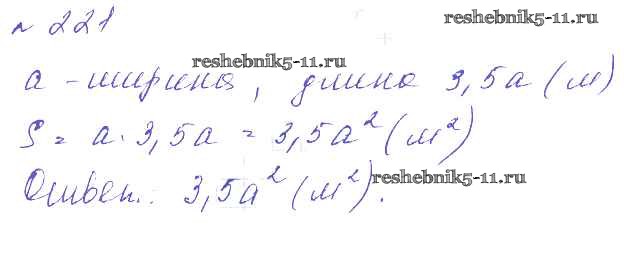 № 221
reshebnik5-11.ru
reshebnik5-11.ru
a - ширина, длина 3,5a (м)
S = a · 3,5a = 3,5a² (м²)
Ответ.: 3,5a² (м²).
reshebnik5-11.ru